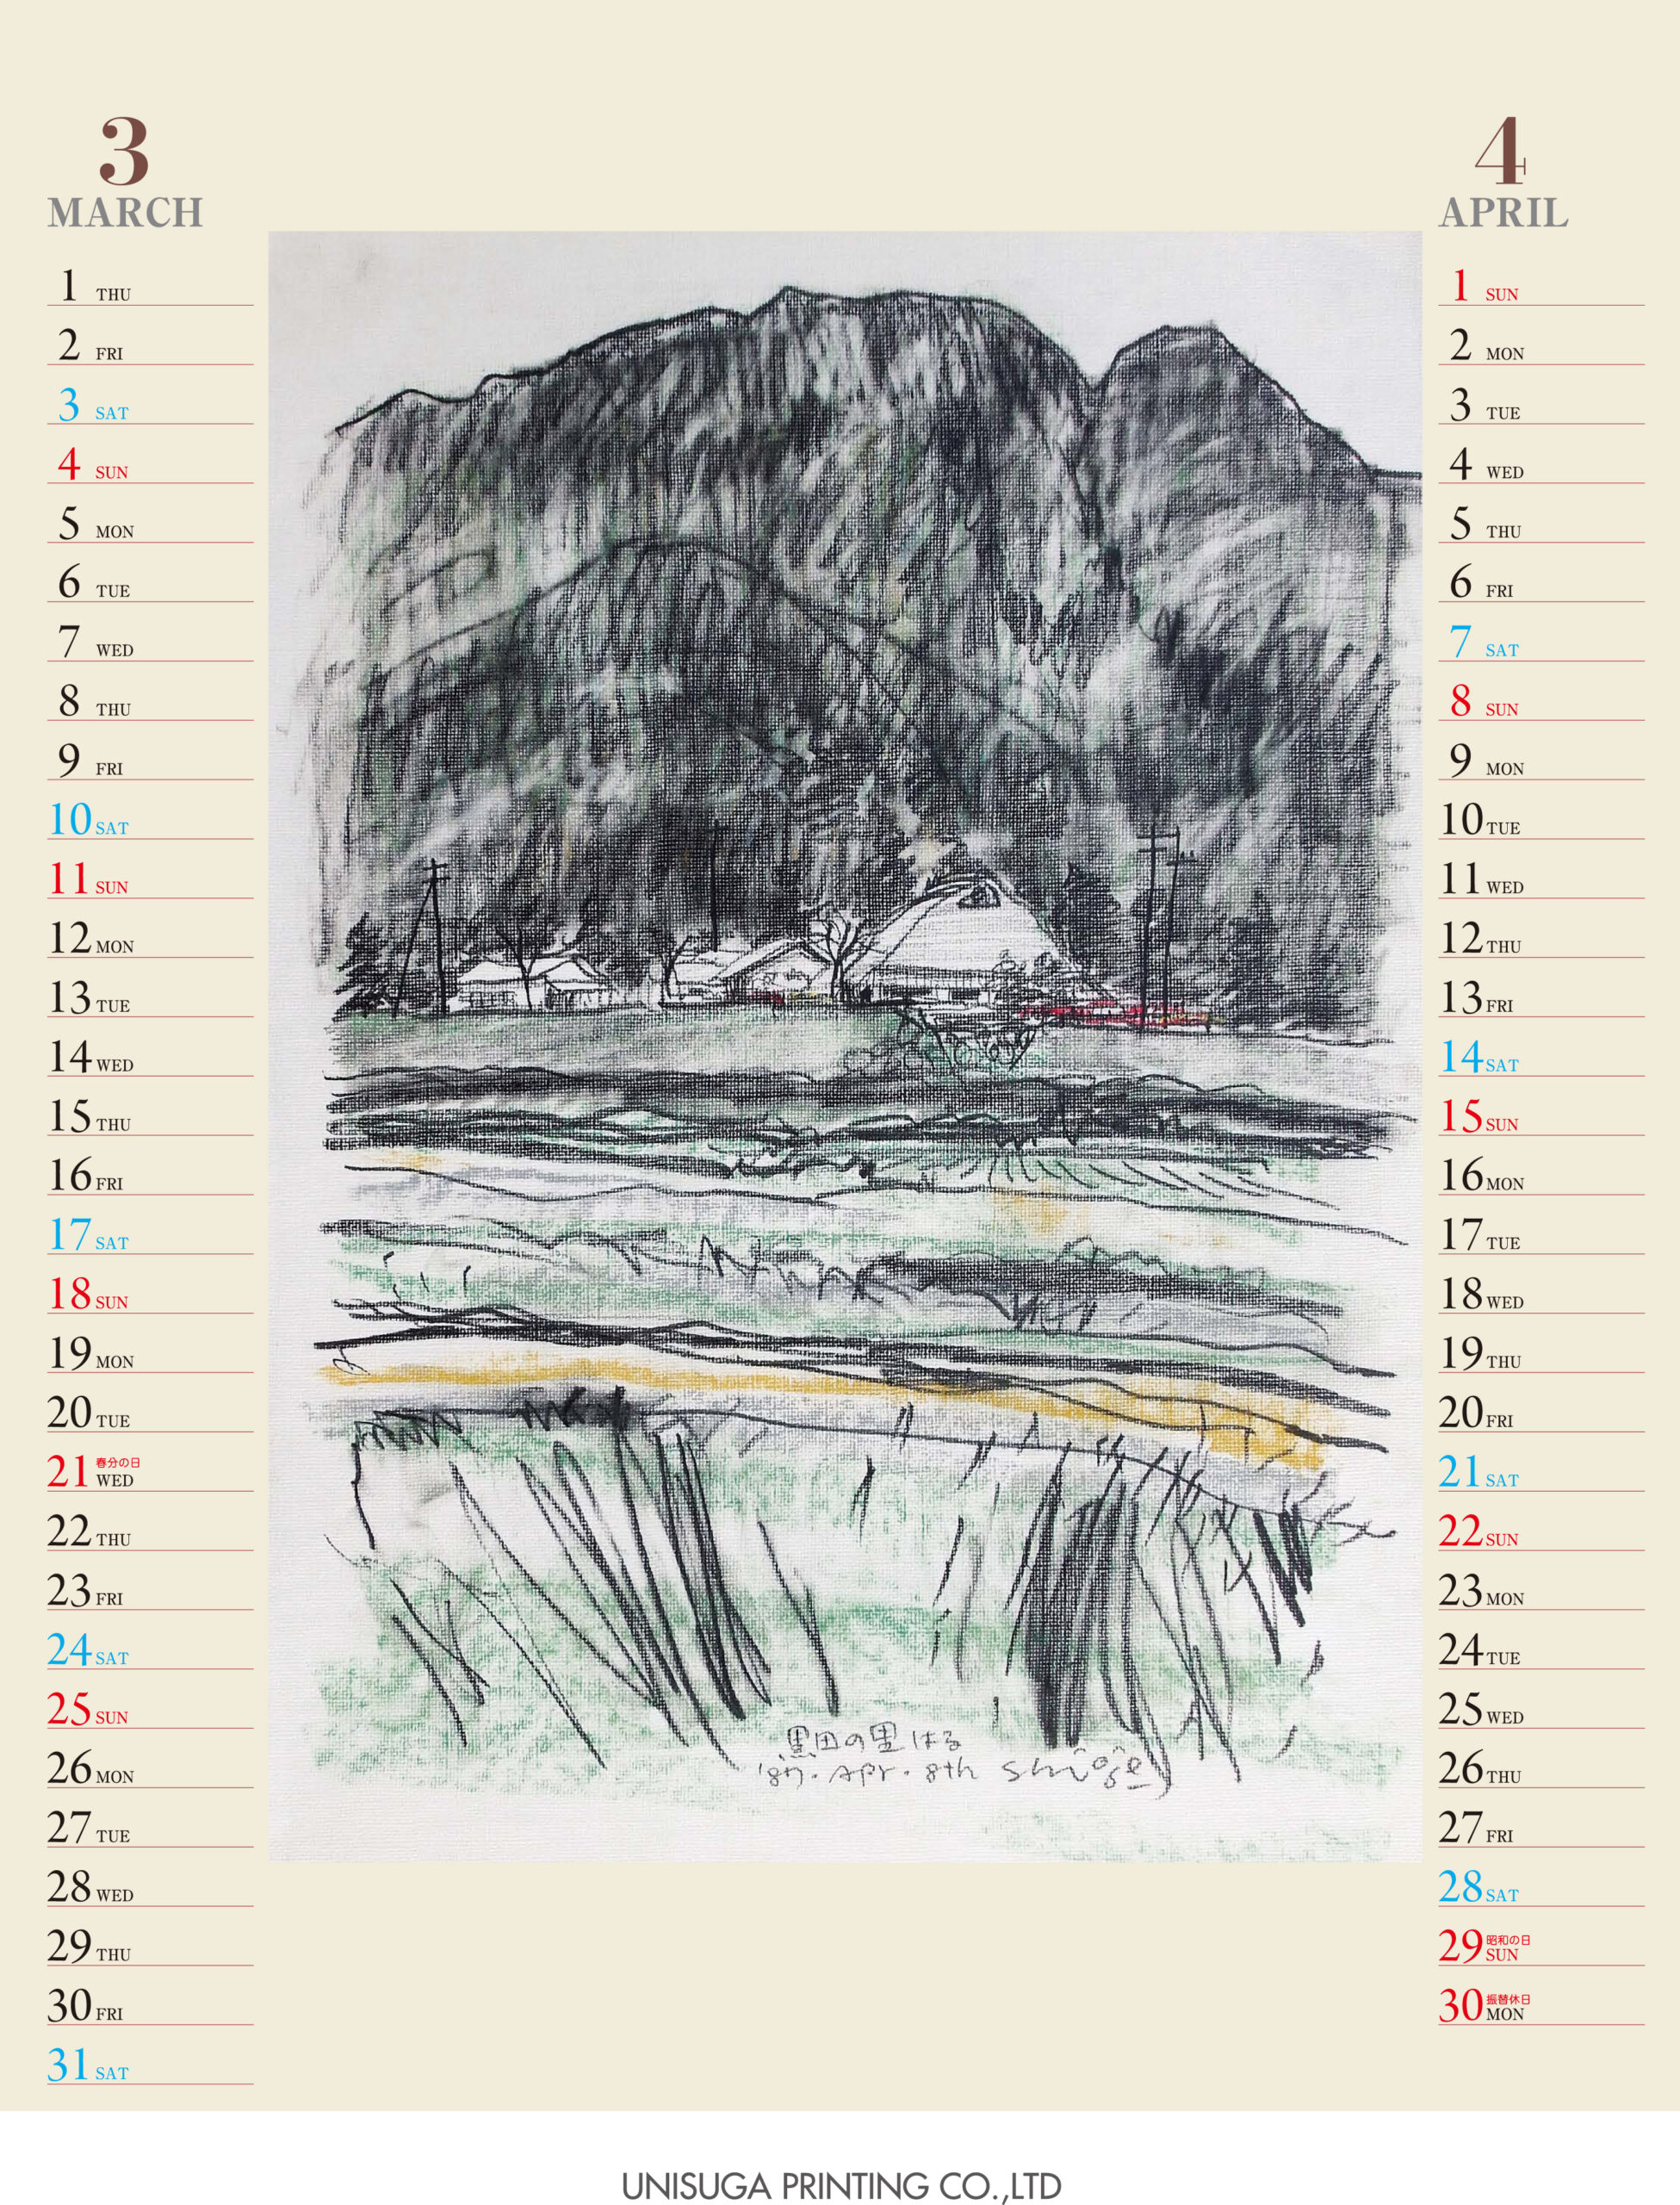 3
MARCH
1 THU
2 FRI
3 SAT
4 SUN
5 MON
6 TUE
7 WED
8 THU
9 FRI
10 SAT
11 SUN
12 MON
13 TUE
14 WED
15 THU
16 FRI
17 SAT
18 SUN
19 MON
20 TUE
21 春分の日 WED
22 THU
23 FRI
24 SAT
25 SUN
26 MON
27 TUE
28 WED
29 THU
30 FRI
31 SAT
黒田の里はる
'87. Apr. 8th Shige
4
APRIL
1 SUN
2 MON
3 TUE
4 WED
5 THU
6 FRI
7 SAT
8 SUN
9 MON
10 TUE
11 WED
12 THU
13 FRI
14 SAT
15 SUN
16 MON
17 TUE
18 WED
19 THU
20 FRI
21 SAT
22 SUN
23 MON
24 TUE
25 WED
26 THU
27 FRI
28 SAT
29 昭和の日 SUN
30 振替休日 MON
UNISUGA PRINTING CO.,LTD